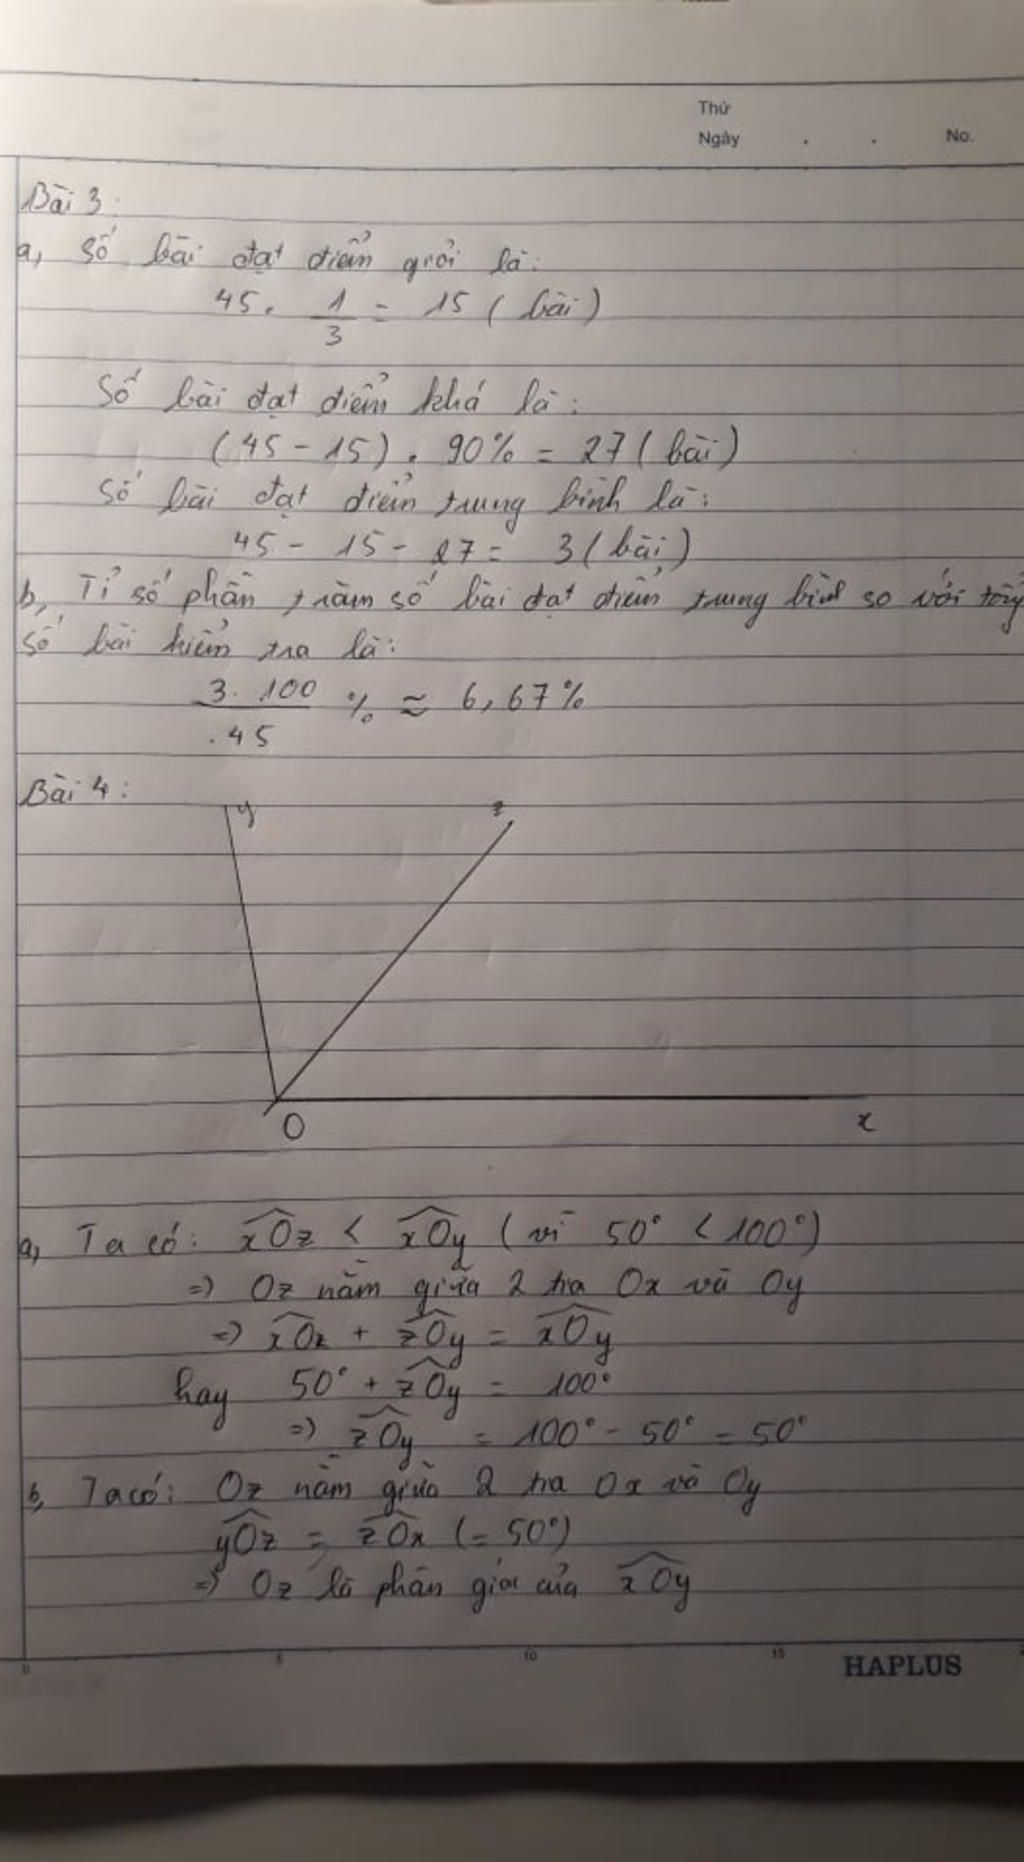 Thứ
Ngày . . No.
Bài 3:
a, Số bài đạt điểm giỏi là:
45 . 1/3 = 15 (bài)
Số bài đạt điểm khá là:
(45 - 15) . 90% = 27 (bài)
Số bài đạt điểm trung bình là:
45 - 15 - 27 = 3 (bài)
b, Tỉ số phần trăm số bài đạt điểm trung bình so với tổng
số bài kiểm tra là:
3 . 100 / 45 % ≈ 6,67%
Bài 4:
y z
O x
a, Ta có: xOz < xOy (vì 50° < 100°)
=> Oz nằm giữa 2 tia Ox và Oy
=> xOz + zOy = xOy
hay 50° + zOy = 100°
=> zOy = 100° - 50° = 50°
b, Ta có: Oz nằm giữa 2 tia Ox và Oy
yOz = zOx (= 50°)
=> Oz là phân giác của xOy
0 5 10 15
HAPLUS